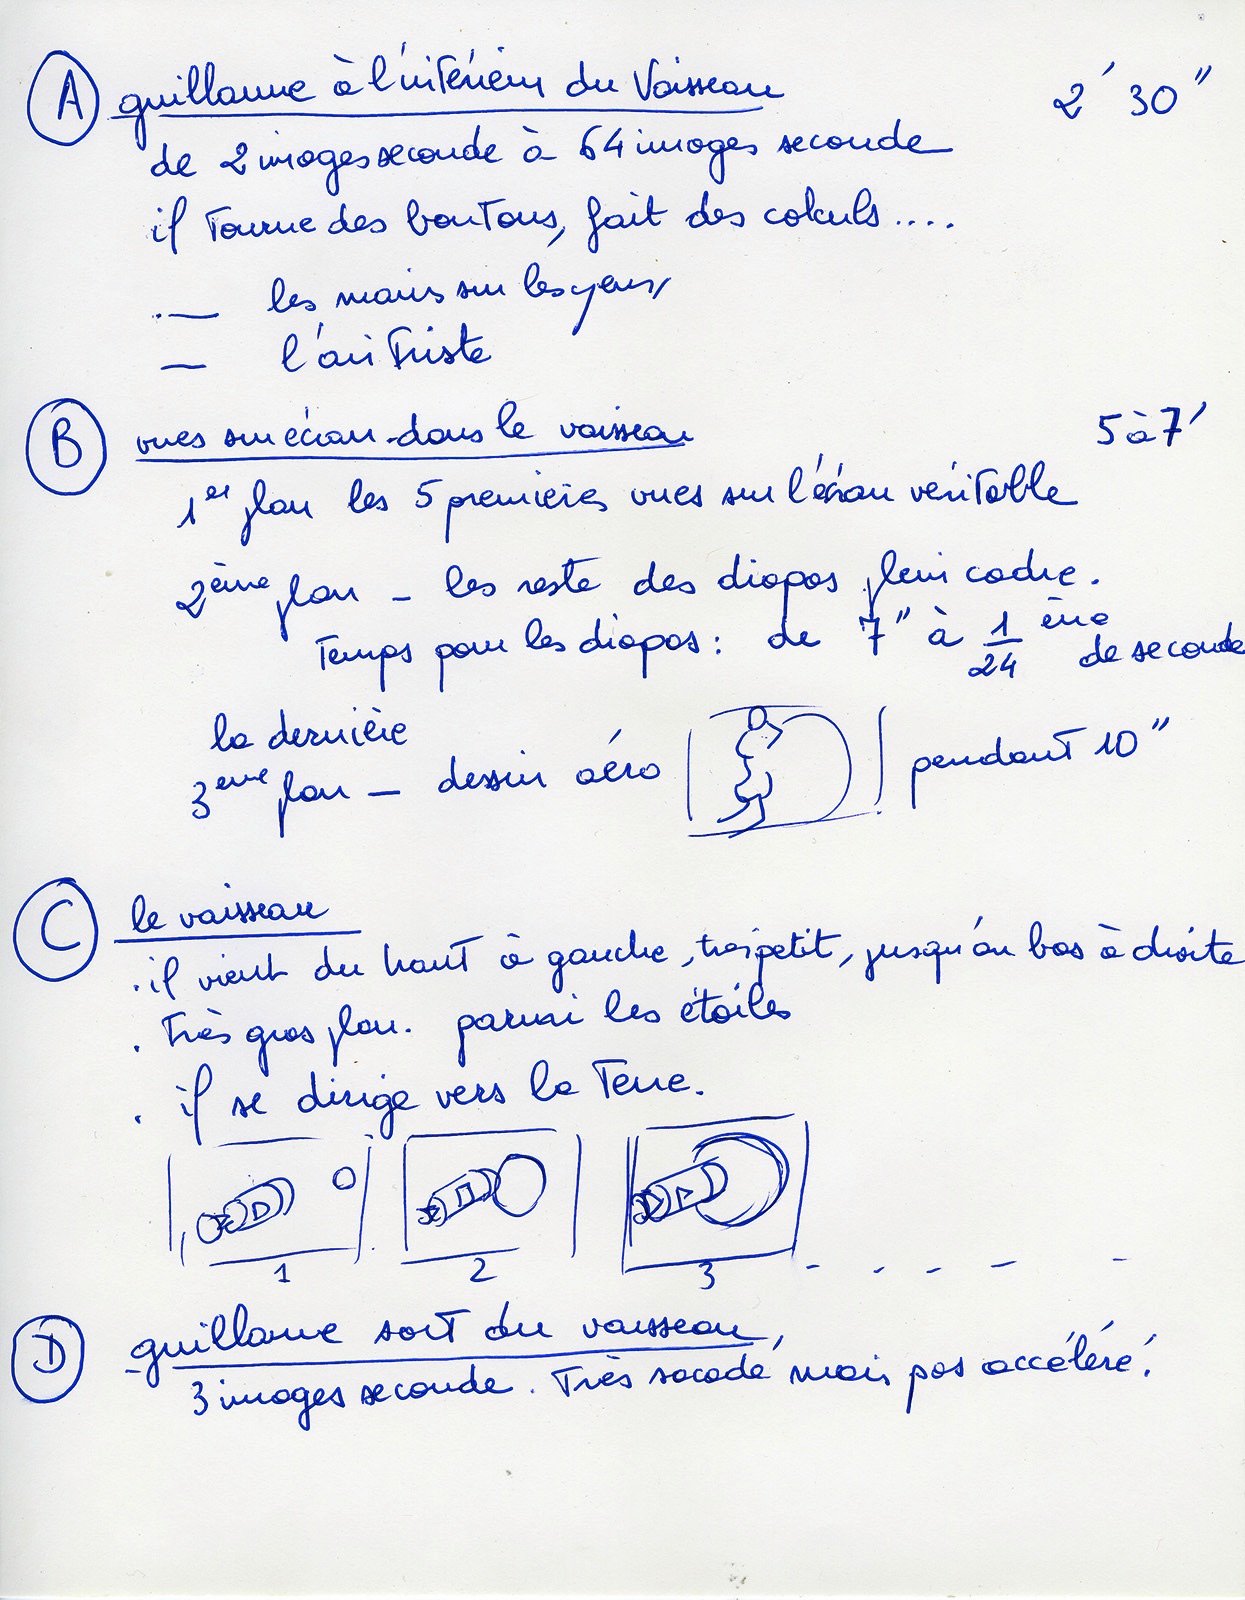 A guillaume à l'intérieur du Vaisseau 2' 30"
de 2 images seconde à 64 images seconde
il tourne des boutons, fait des calculs....
— les mains sur les yeux,
— l'air triste
B vues sur écran dans le vaisseau 5 à 7'
1er plan les 5 premières vues sur l'écran véritable
2ème plan – les reste des diapos plein cadre.
Temps pour les diapos : de 7" à 1/24 ème de seconde
la dernière
3ème plan – dessin aéro pendant 10"
C le vaisseau
. il vient du haut à gauche, très petit, jusqu'au bas à droite
. Très gros plan. parmi les étoiles
. il se dirige vers la Terre.
1 2 3 - - - - -
D guillaume sort du vaisseau,
3 images seconde. Très sacadé mais pas accéléré.